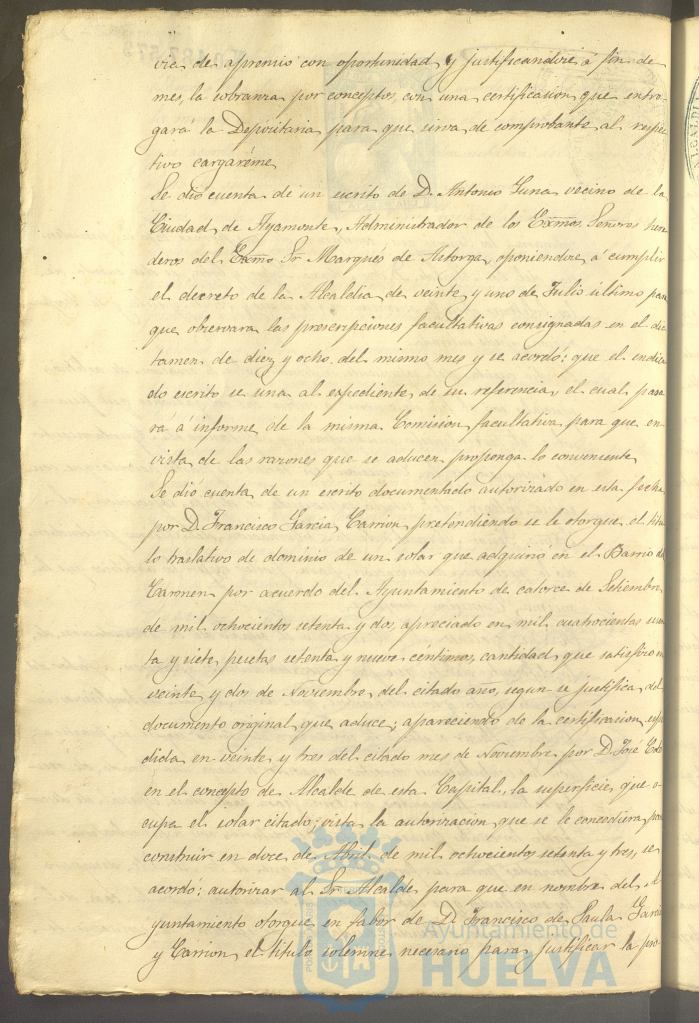 via de apremio con oportunidad, y justificandose á fin de
mes, la cobranza por conceptos, con una certificacion, que entre-
gará la Depositaria, para que sirva de comprobante, al respec-
tivo cargaréme,
Se dió cuenta de un escrito de D. Antonio vecino de la
Ciudad de Ayamonte, Administrador de los Exmos. Señores here-
deros del Exmo Sr Marqués de Astorga, oponiendose, á cumplir
el decreto de la Alcaldia, de veinte y uno de Julio último para
que observara las prescripciones facultativas consignadas en el dic-
tamen de diez y ocho del mismo mes y se acordó: que el indica-
do escrito se una al expediente, de su referencia, el cual pasa-
rá á informe de la misma Comision facultativa para que en
vista de las razones que se aducen proponga lo conveniente,
Se dió cuenta de un escrito documentado autorizado en esta fecha
por D. Francisco Garcia Carrion, pretendiendo se le otorgue, el titu-
lo traslativo de dominio de un solar que adquirió en el Barrio del
Carmen por acuerdo del Ayuntamiento de catorce de Setiembre,
de mil ochocientos setenta y dos, apreciado en mil cuatrocientas
ta y siete, pesetas setenta y nueve céntimos, cantidad, que satisfizo en
veinte y dos de Noviembre, del citado año, segun se justifica, del
documento original, que aduce; apareciendo de la certificacion, espe-
dida en veinte y tres del citado mes de Noviembre por D. José
en el concepto de Alcalde de esta Capital, la superficie, que o-
cupa el solar citado; vista la autorizacion, que se le concediera, para
construir en doce de Abril de mil ochocientos setenta y tres, se
acordó: autorizar al Sr Alcalde, para que en nombre del A-
yuntamiento otorgue, en fabor de D. Francisco de Paula Garcia
y Carrion, el titulo solemne, necesario para justificar la pro-
Ayuntamiento de
HUELVA